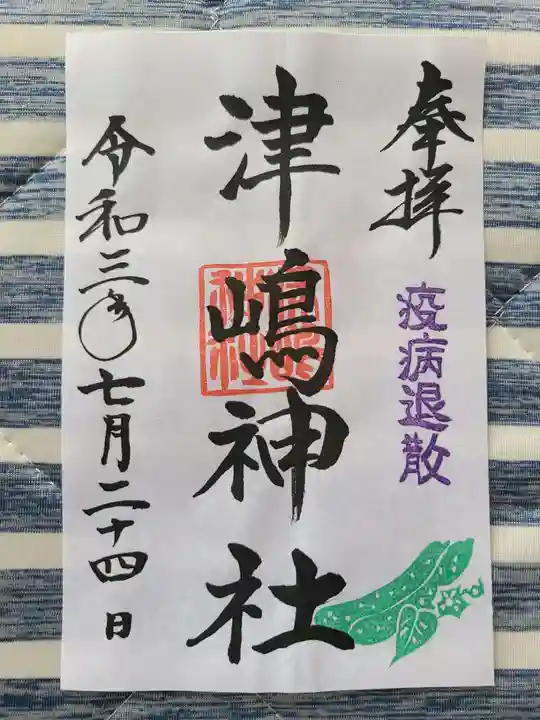 奉拝
疫病退散
津嶋神社
令和三年七月二十四日